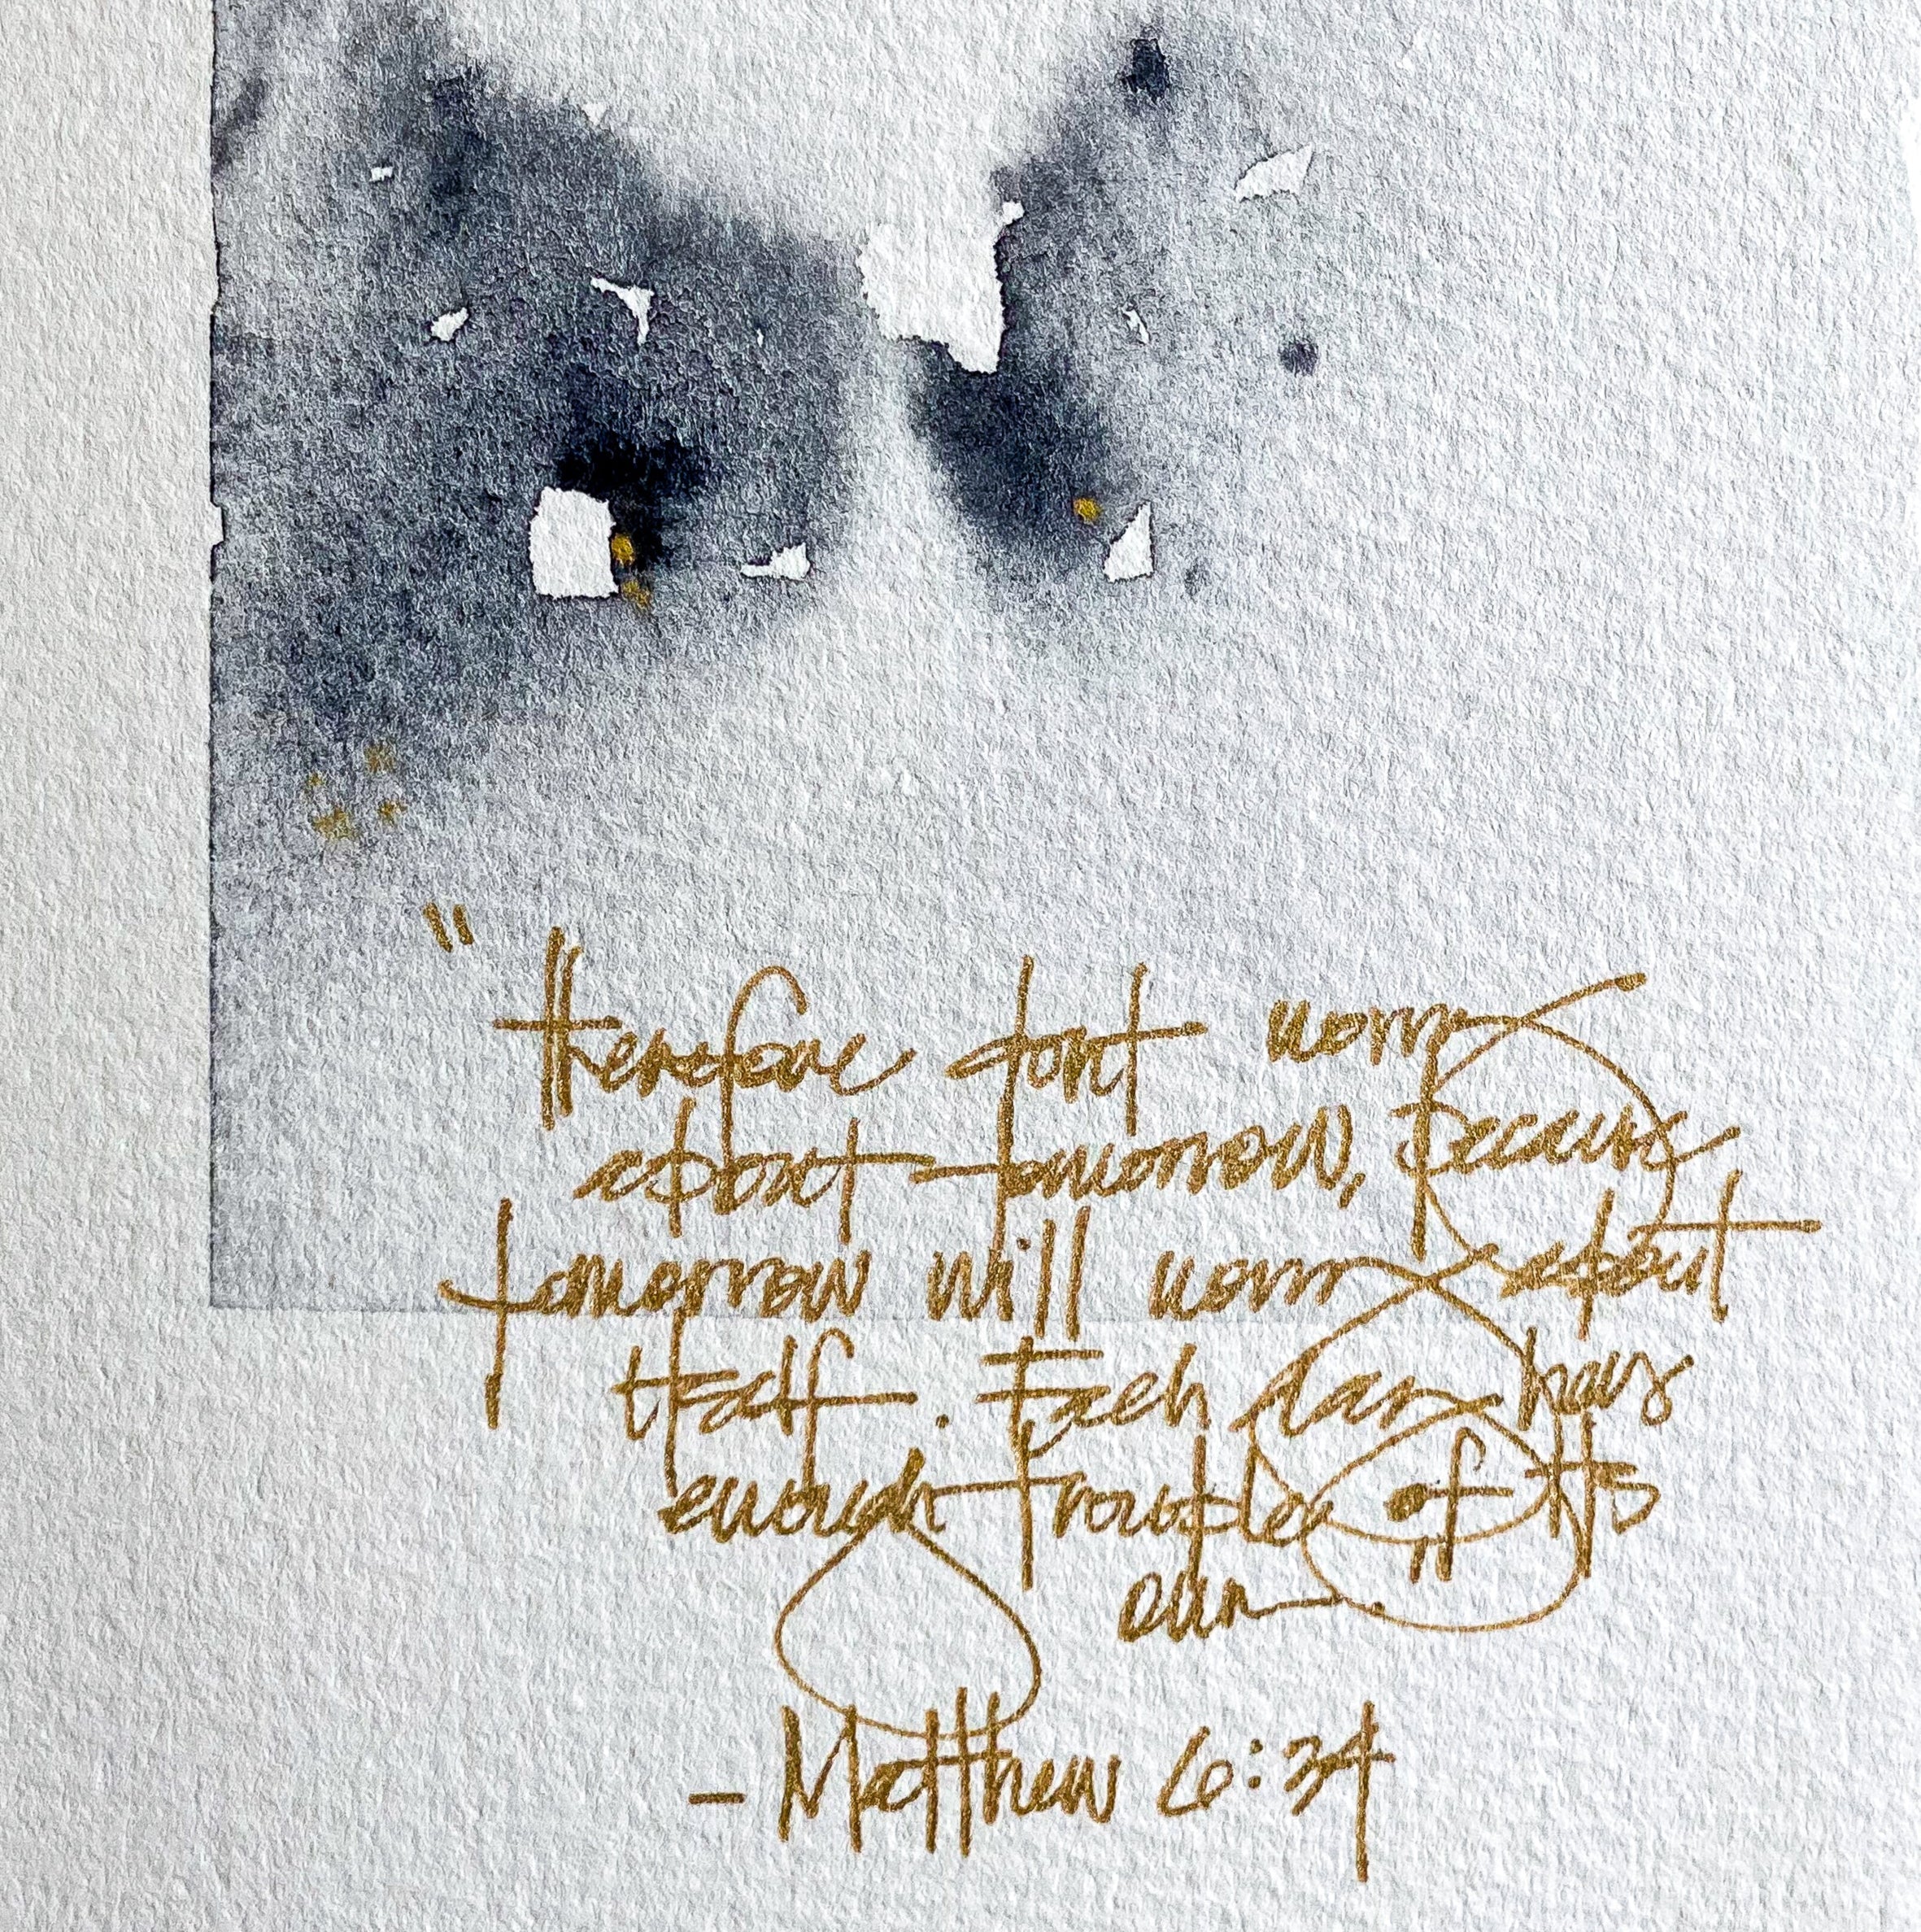 " therefore don't worry
about tomorrow, because
tomorrow will worry about
itself. Each day has
enough trouble of its
own.
- Matthew 6:34